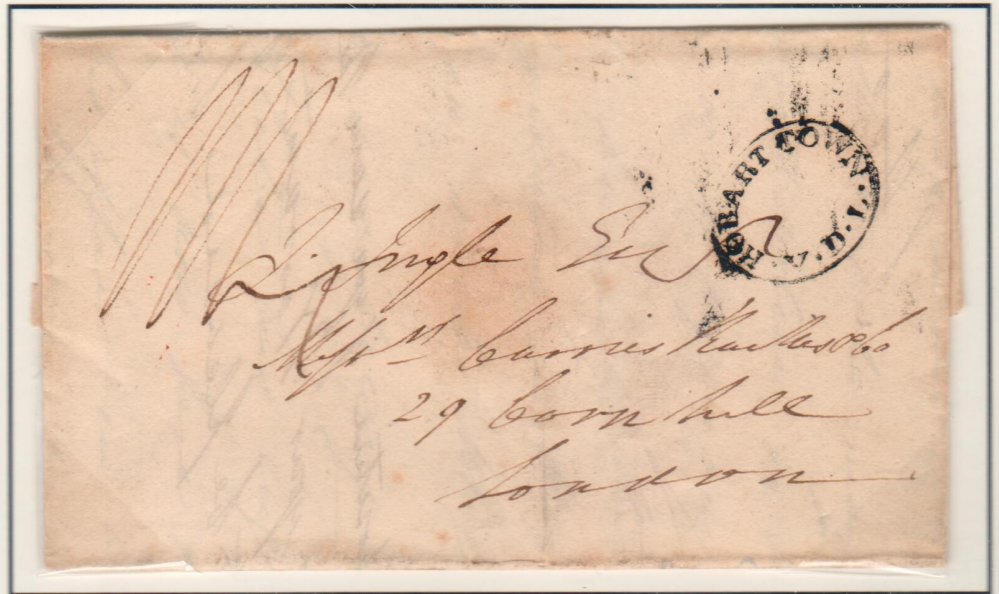 HOBART TOWN. V.D.L.
J. Ingle Esqr
Messrs Curries & Co
29 Cornhill
London